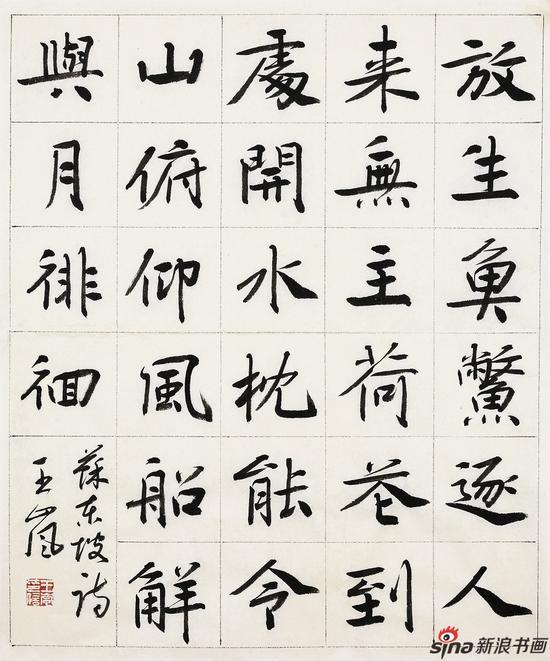 放生魚鱉逐人
来無主荷花到
處開水枕能令
山俯仰風船解
與月徘徊
蘇東坡詩
王嵐
sina新浪书画